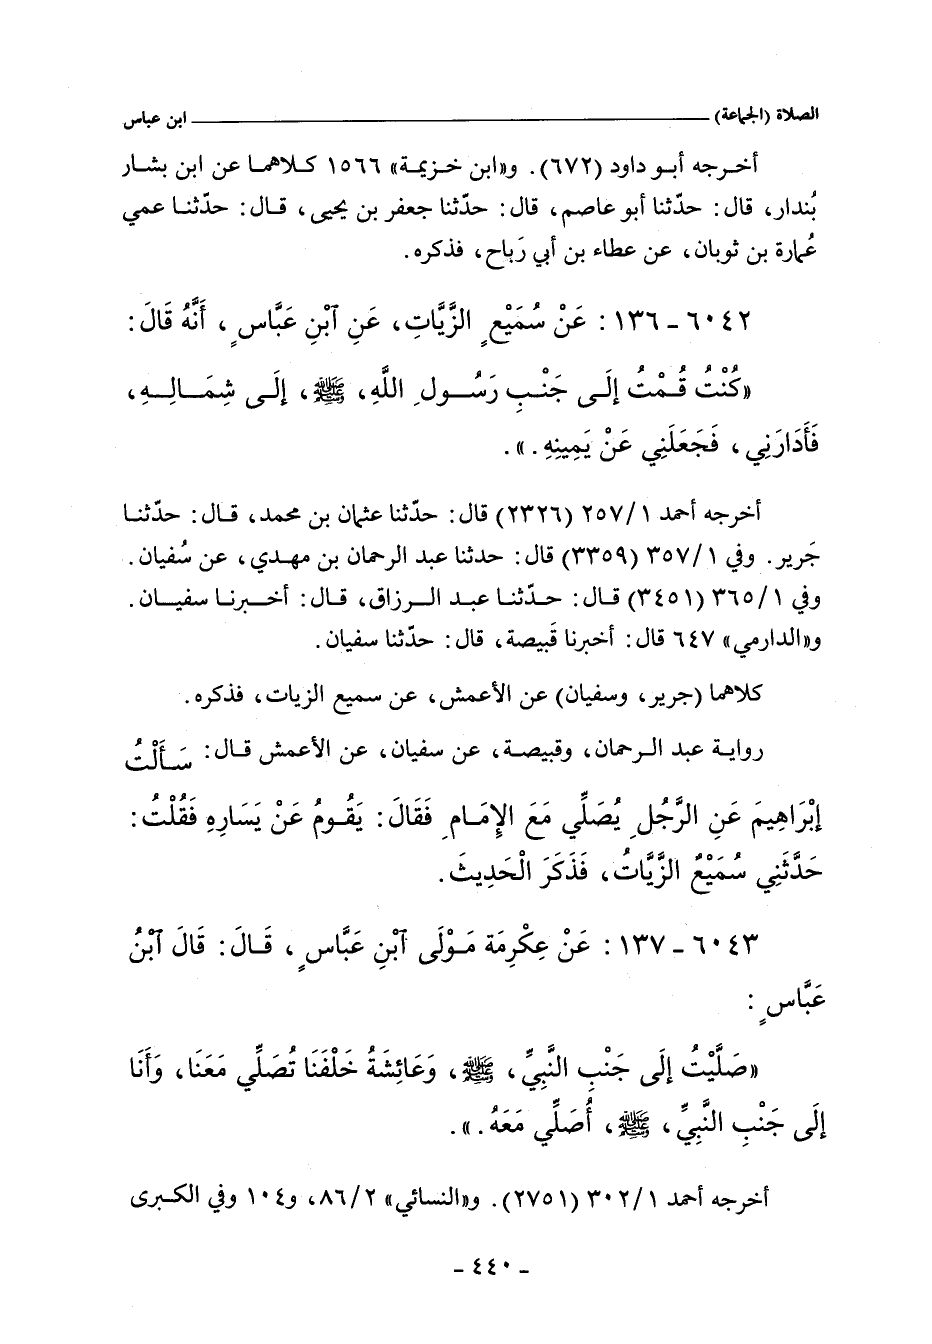 الصلاة (الجماعة) ابن عباس
أخرجه أبو داود (٦٧٢). و«ابن خزيمة» ١٥٦٦ كلاهما عن ابن بشار
بُندار، قال: حدّثنا أبو عاصم، قال: حدّثنا جعفر بن يحيى، قال: حدّثنا عمي
عُمارة بن ثوبان، عن عطاء بن أبي رَباح، فذكره.
٦٠٤٢ - ١٣٦: عَنْ سُمَيْعٍ الزَّيَّاتِ، عَنِ ٱبْنِ عَبَّاسٍ، أَنَّهُ قَالَ:
«كُنْتُ قُمْتُ إِلَى جَنْبِ رَسُولِ اللَّهِ، ﷺ، إِلَى شِمَالِهِ،
فَأَدَارَنِي، فَجَعَلَنِي عَنْ يَمِينِهِ.».
أخرجه أحمد ١/٢٥٧ (٢٣٢٦) قال: حدّثنا عثمان بن محمد، قال: حدّثنا
جَرير. وفي ١/٣٥٧ (٣٣٥٩) قال: حدثنا عبد الرحمان بن مهدي، عن سُفيان.
وفي ١/٣٦٥ (٣٤٥١) قال: حدّثنا عبد الرزاق، قال: أخبرنا سفيان.
و«الدارمي» ٦٤٧ قال: أخبرنا قَبيصة، قال: حدّثنا سفيان.
كلاهما (جرير، وسفيان) عن الأعمش، عن سميع الزيات، فذكره.
رواية عبد الرحمان، وقبيصة، عن سفيان، عن الأعمش قال: سَأَلْتُ
إِبْرَاهِيمَ عَنِ الرَّجُلِ يُصَلِّي مَعَ الإِمَامِ فَقَالَ: يَقُومُ عَنْ يَسَارِهِ فَقُلْتُ:
حَدَّثَنِي سُمَيْعٌ الزَّيَّاتُ، فَذَكَرَ الْحَدِيثَ.
٦٠٤٣ - ١٣٧: عَنْ عِكْرِمَة مَوْلَى ٱبْنِ عَبَّاسٍ، قَالَ: قَالَ ٱبْنُ
عَبَّاسٍ:
«صَلَّيْتُ إِلَى جَنْبِ النَّبِيِّ، ﷺ، وَعَائِشَةُ خَلْفَنَا تُصَلِّي مَعَنَا، وَأَنَا
إِلَى جَنْبِ النَّبِيِّ، ﷺ، أُصَلِّي مَعَهُ.».
أخرجه أحمد ١/٣٠٢ (٢٧٥١). و«النسائي» ٢/٨٦، و١٠٤ وفي الكبرى
- ٤٤٠ -